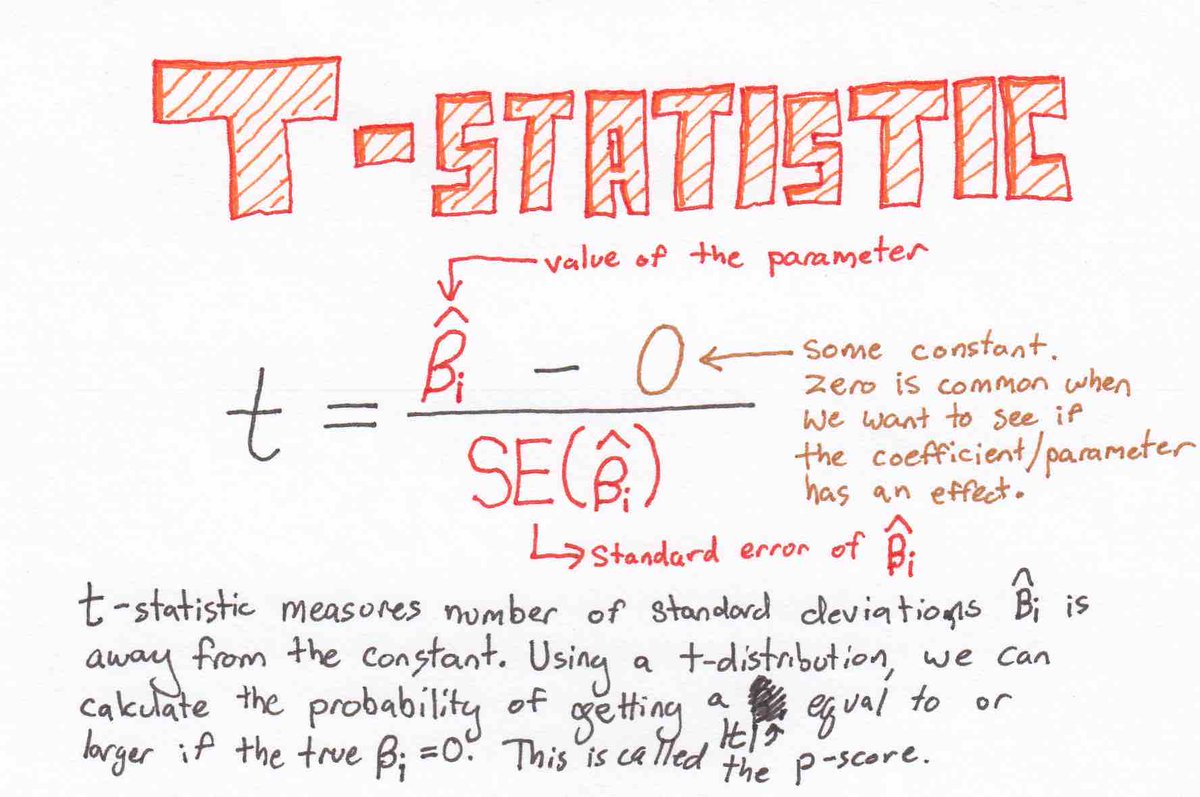 T-STATISTIC
value of the parameter
t = β̂i - 0
SE(β̂i)
some constant.
Zero is common when
we want to see if
the coefficient/parameter
has an effect.
Standard error of β̂i
t-statistic measures number of standard deviations β̂i is
away from the constant. Using a t-distribution, we can
calculate the probability of getting a |t| equal to or
larger if the true βi = 0. This is called the p-score.